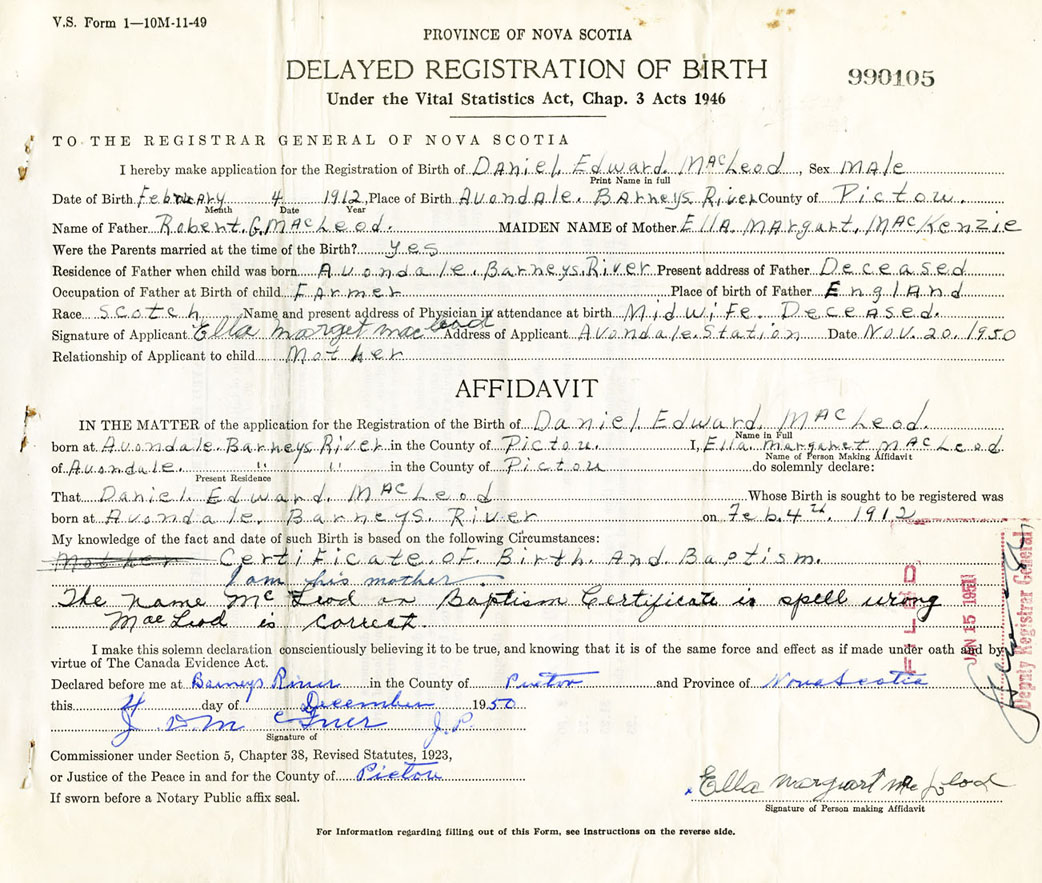 V.S. Form 1—10M-11-49
PROVINCE OF NOVA SCOTIA
DELAYED REGISTRATION OF BIRTH
990105
Under the Vital Statistics Act, Chap. 3 Acts 1946
TO THE REGISTRAR GENERAL OF NOVA SCOTIA
I hereby make application for the Registration of Birth of Daniel. Edward. MacLeod, Sex Male
Print Name in full
Date of Birth February 4 1912, Place of Birth Avondale. Barneys River County of Pictou.
Month Date Year
Name of Father Robert. G. MacLeod. MAIDEN NAME of Mother Ella. Margart. MacKenzie
Were the Parents married at the time of the Birth? Yes
Residence of Father when child was born Avondale. Barneys. River Present address of Father Deceased
Occupation of Father at Birth of child Farmer Place of birth of Father England
Race Scotch Name and present address of Physician in attendance at birth Midwife. Deceased.
Signature of Applicant Ella marget macleod Address of Applicant Avondale. Station Date Nov. 20, 1950
Relationship of Applicant to child Mother
AFFIDAVIT
IN THE MATTER of the application for the Registration of the Birth of Daniel. Edward. MacLeod.
Name in Full
born at Avondale. Barneys River in the County of Pictou. I, Ella. Margaret MacLeod.
Name of Person Making Affidavit
of Avondale. " " in the County of Pictou do solemnly declare:
Present Residence
That Daniel. Edward. MacLeod Whose Birth is sought to be registered was
born at Avondale. Barneys. River on Feb. 4th. 1912
My knowledge of the fact and date of such Birth is based on the following Circumstances:
Mother Certificate. Of. Birth And Baptism.
I am his mother.
The name McLeod on Baptism Certificate is spell wrong
MacLeod is correct.
FILED
JAN 15 1951
Deputy Registrar General
I make this solemn declaration conscientiously believing it to be true, and knowing that it is of the same force and effect as if made under oath and by
virtue of The Canada Evidence Act.
Declared before me at Barneys River in the County of Pictou and Province of Nova Scotia
this 4 day of December 1950
J. D. M J.P.
Signature of
Commissioner under Section 5, Chapter 38, Revised Statutes, 1923,
or Justice of the Peace in and for the County of Pictou
Ella Margart McLeod
If sworn before a Notary Public affix seal.
Signature of Person making Affidavit
For Information regarding filling out of this Form, see instructions on the reverse side.